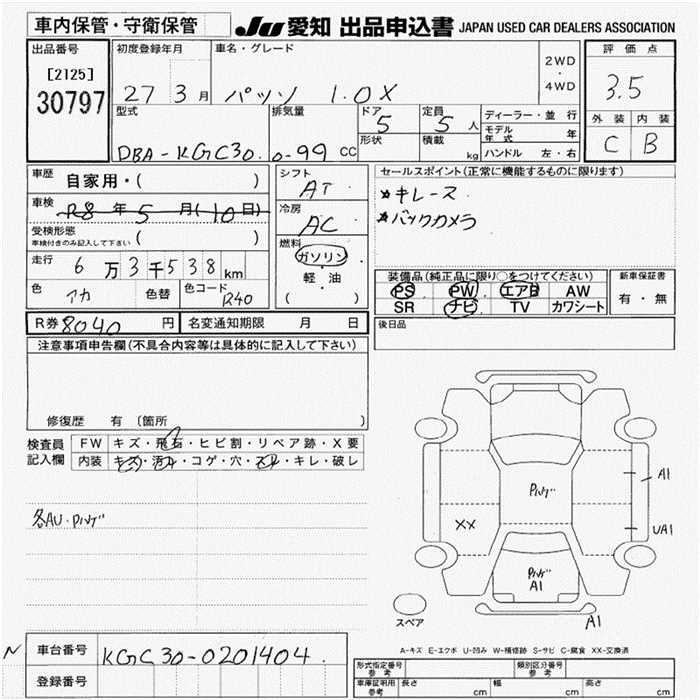 車内保管・守衛保管
JU 愛知 出品申込書 JAPAN USED CAR DEALERS ASSOCIATION
出品番号
[2125]
30797
初度登録年月
27 3月
車名・グレード
パッソ 1.0X
2WD
・
4WD
評価点
3.5
外装 内装
C B
型式
DBA-KGC30
排気量
0-99 CC
ドア
5
形状
定員
5人
積載
kg
ディーラー・並行
モデル年式 年
ハンドル 左・右
車歴
自家用・( )
車検
R8年5月(10日)
受検形態
車検付きのみ記入して下さい ( )
走行
6万3千538km
色
アカ
色替
色コード
R40
シフト
AT
冷房
AC
燃料
ガソリン
軽・油
( ・ )
セールスポイント(正常に機能するものに限ります)
*キレース
*バックカメラ
装備品(純正品に限り○をつけてください)
PS PW エアB AW
SR ナビ TV カワシート
新車保証書
有・無
R券 8040円
名変通知期限 月 日
後日品
注意事項申告欄(不具合内容等は具体的に記入して下さい)
修復歴 有 〔箇所 )
検査員記入欄
FW キズ・飛石・ヒビ割・リペア跡・X要
内装 キズ・汚れ・コゲ・穴・スレ・キレ・破レ
各AU・Pハゲ
Pハゲ
A1
XX
UA1
Pハゲ
A1
A1
スペア
A-キズ E-エクボ U-凹み W-補修跡 S-サビ C-腐食 XX-交換済
N
車台番号
KGC30-0201404.
登録番号
形式指定番号
参考
類別区分番号
参考
車庫証明用
参考
長さ cm
幅 cm
高さ cm